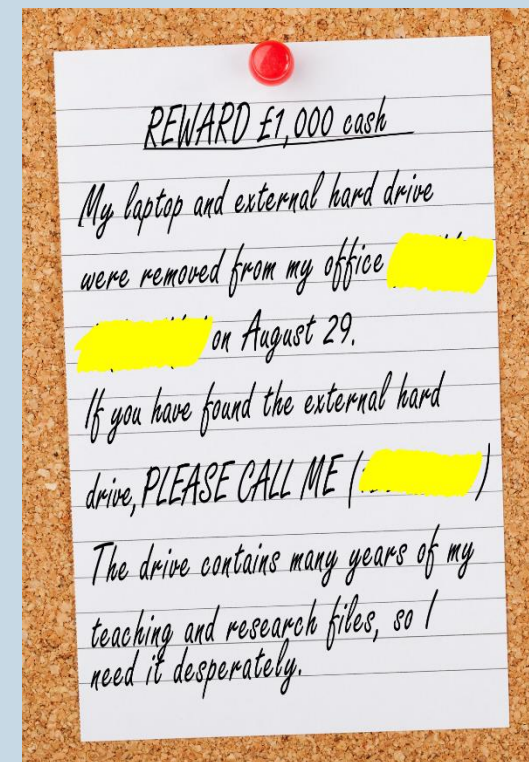 REWARD £1,000 cash
My laptop and external hard drive
were removed from my office
on August 29.
If you have found the external hard
drive, PLEASE CALL ME ( )
The drive contains many years of my
teaching and research files, so I
need it desperately.